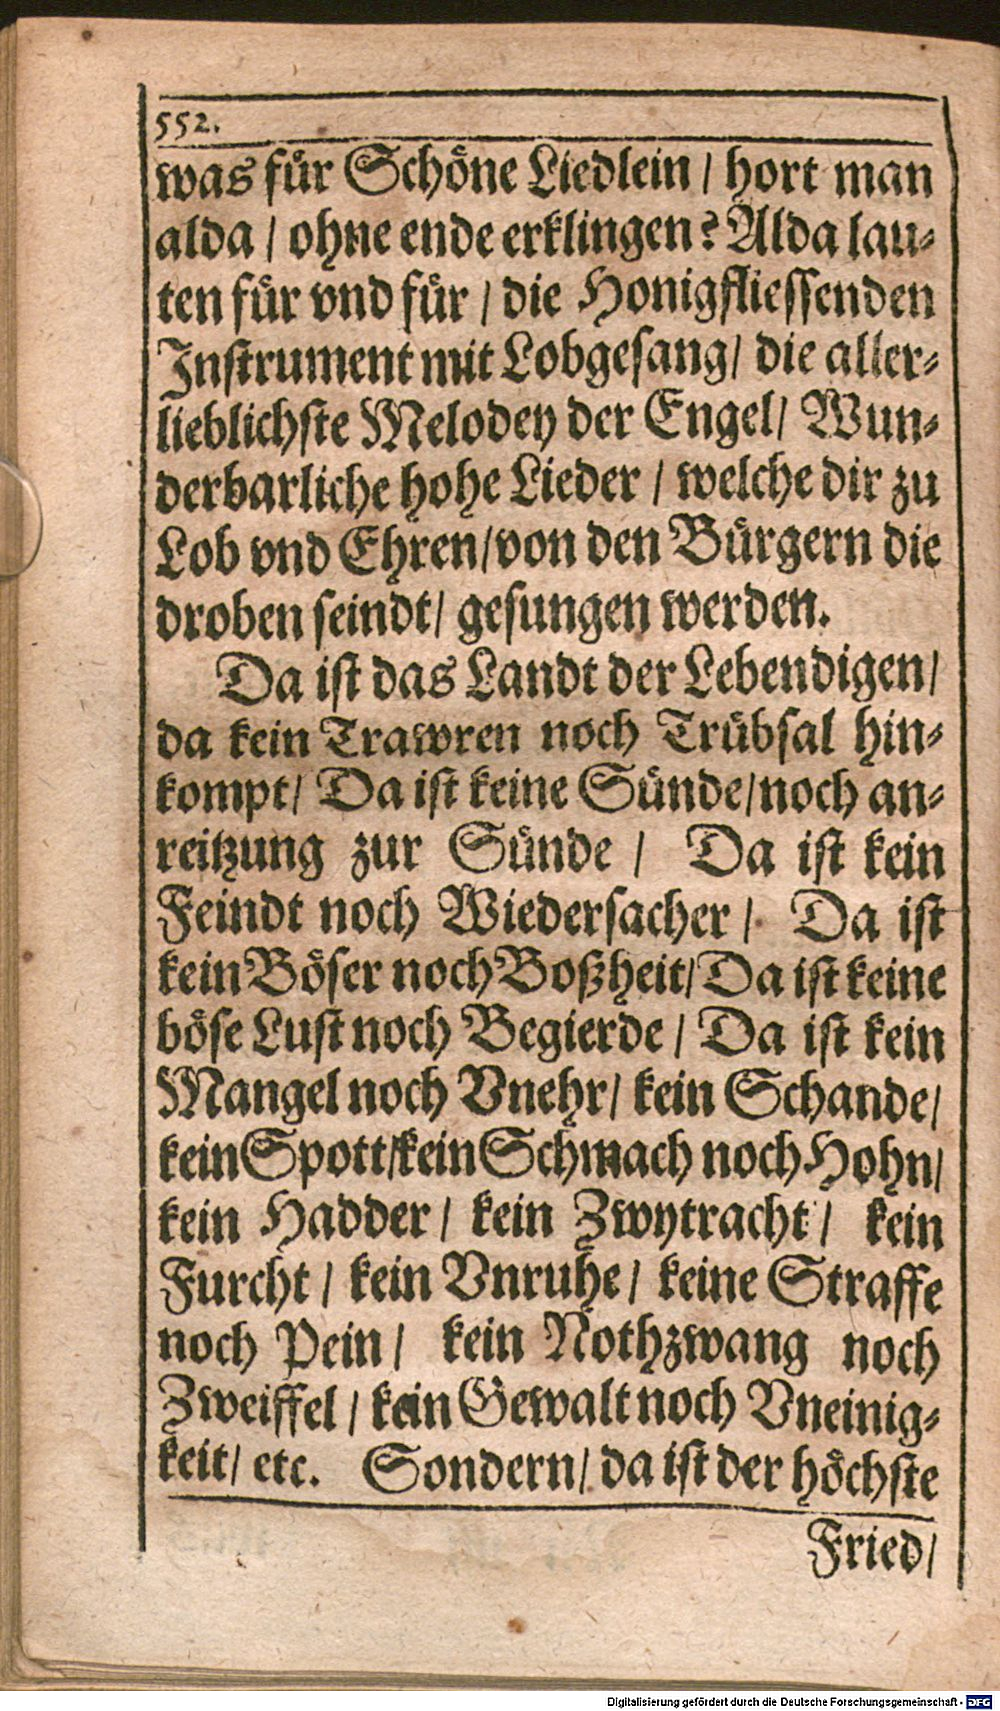 552.
was fuͤr Schoͤne Liedlein / hort man
alda / ohne ende erklingen? Alda lau⸗
ten fuͤr vnd fuͤr / die Honigfliessenden
Instrument mit Lobgesang / die aller⸗
lieblichste Melodey der Engel / Wun⸗
derbarliche hohe Lieder / welche dir zu
Lob vnd Ehren / von den Buͤrgern die
droben seindt / gesungen werden.
Da ist das Landt der Lebendigen /
da kein Trawren noch Truͤbsal hin⸗
kompt / Da ist keine Suͤnde / noch an⸗
reitzung zur Suͤnde / Da ist kein
Feindt noch Wiedersacher / Da ist
kein Boͤser noch Boßheit / Da ist keine
boͤse Lust noch Begierde / Da ist kein
Mangel noch Vnehr / kein Schande /
kein Spott / kein Schmach noch Hohn /
kein Hadder / kein Zwytracht / kein
Furcht / kein Vnruhe / keine Straffe
noch Pein / kein Nothzwang noch
Zweiffel / kein Gewalt noch Vneinig⸗
keit / etc. Sondern / da ist der hoͤchste
Fried /
Digitalisierung gefördert durch die Deutsche Forschungsgemeinschaft - DFG